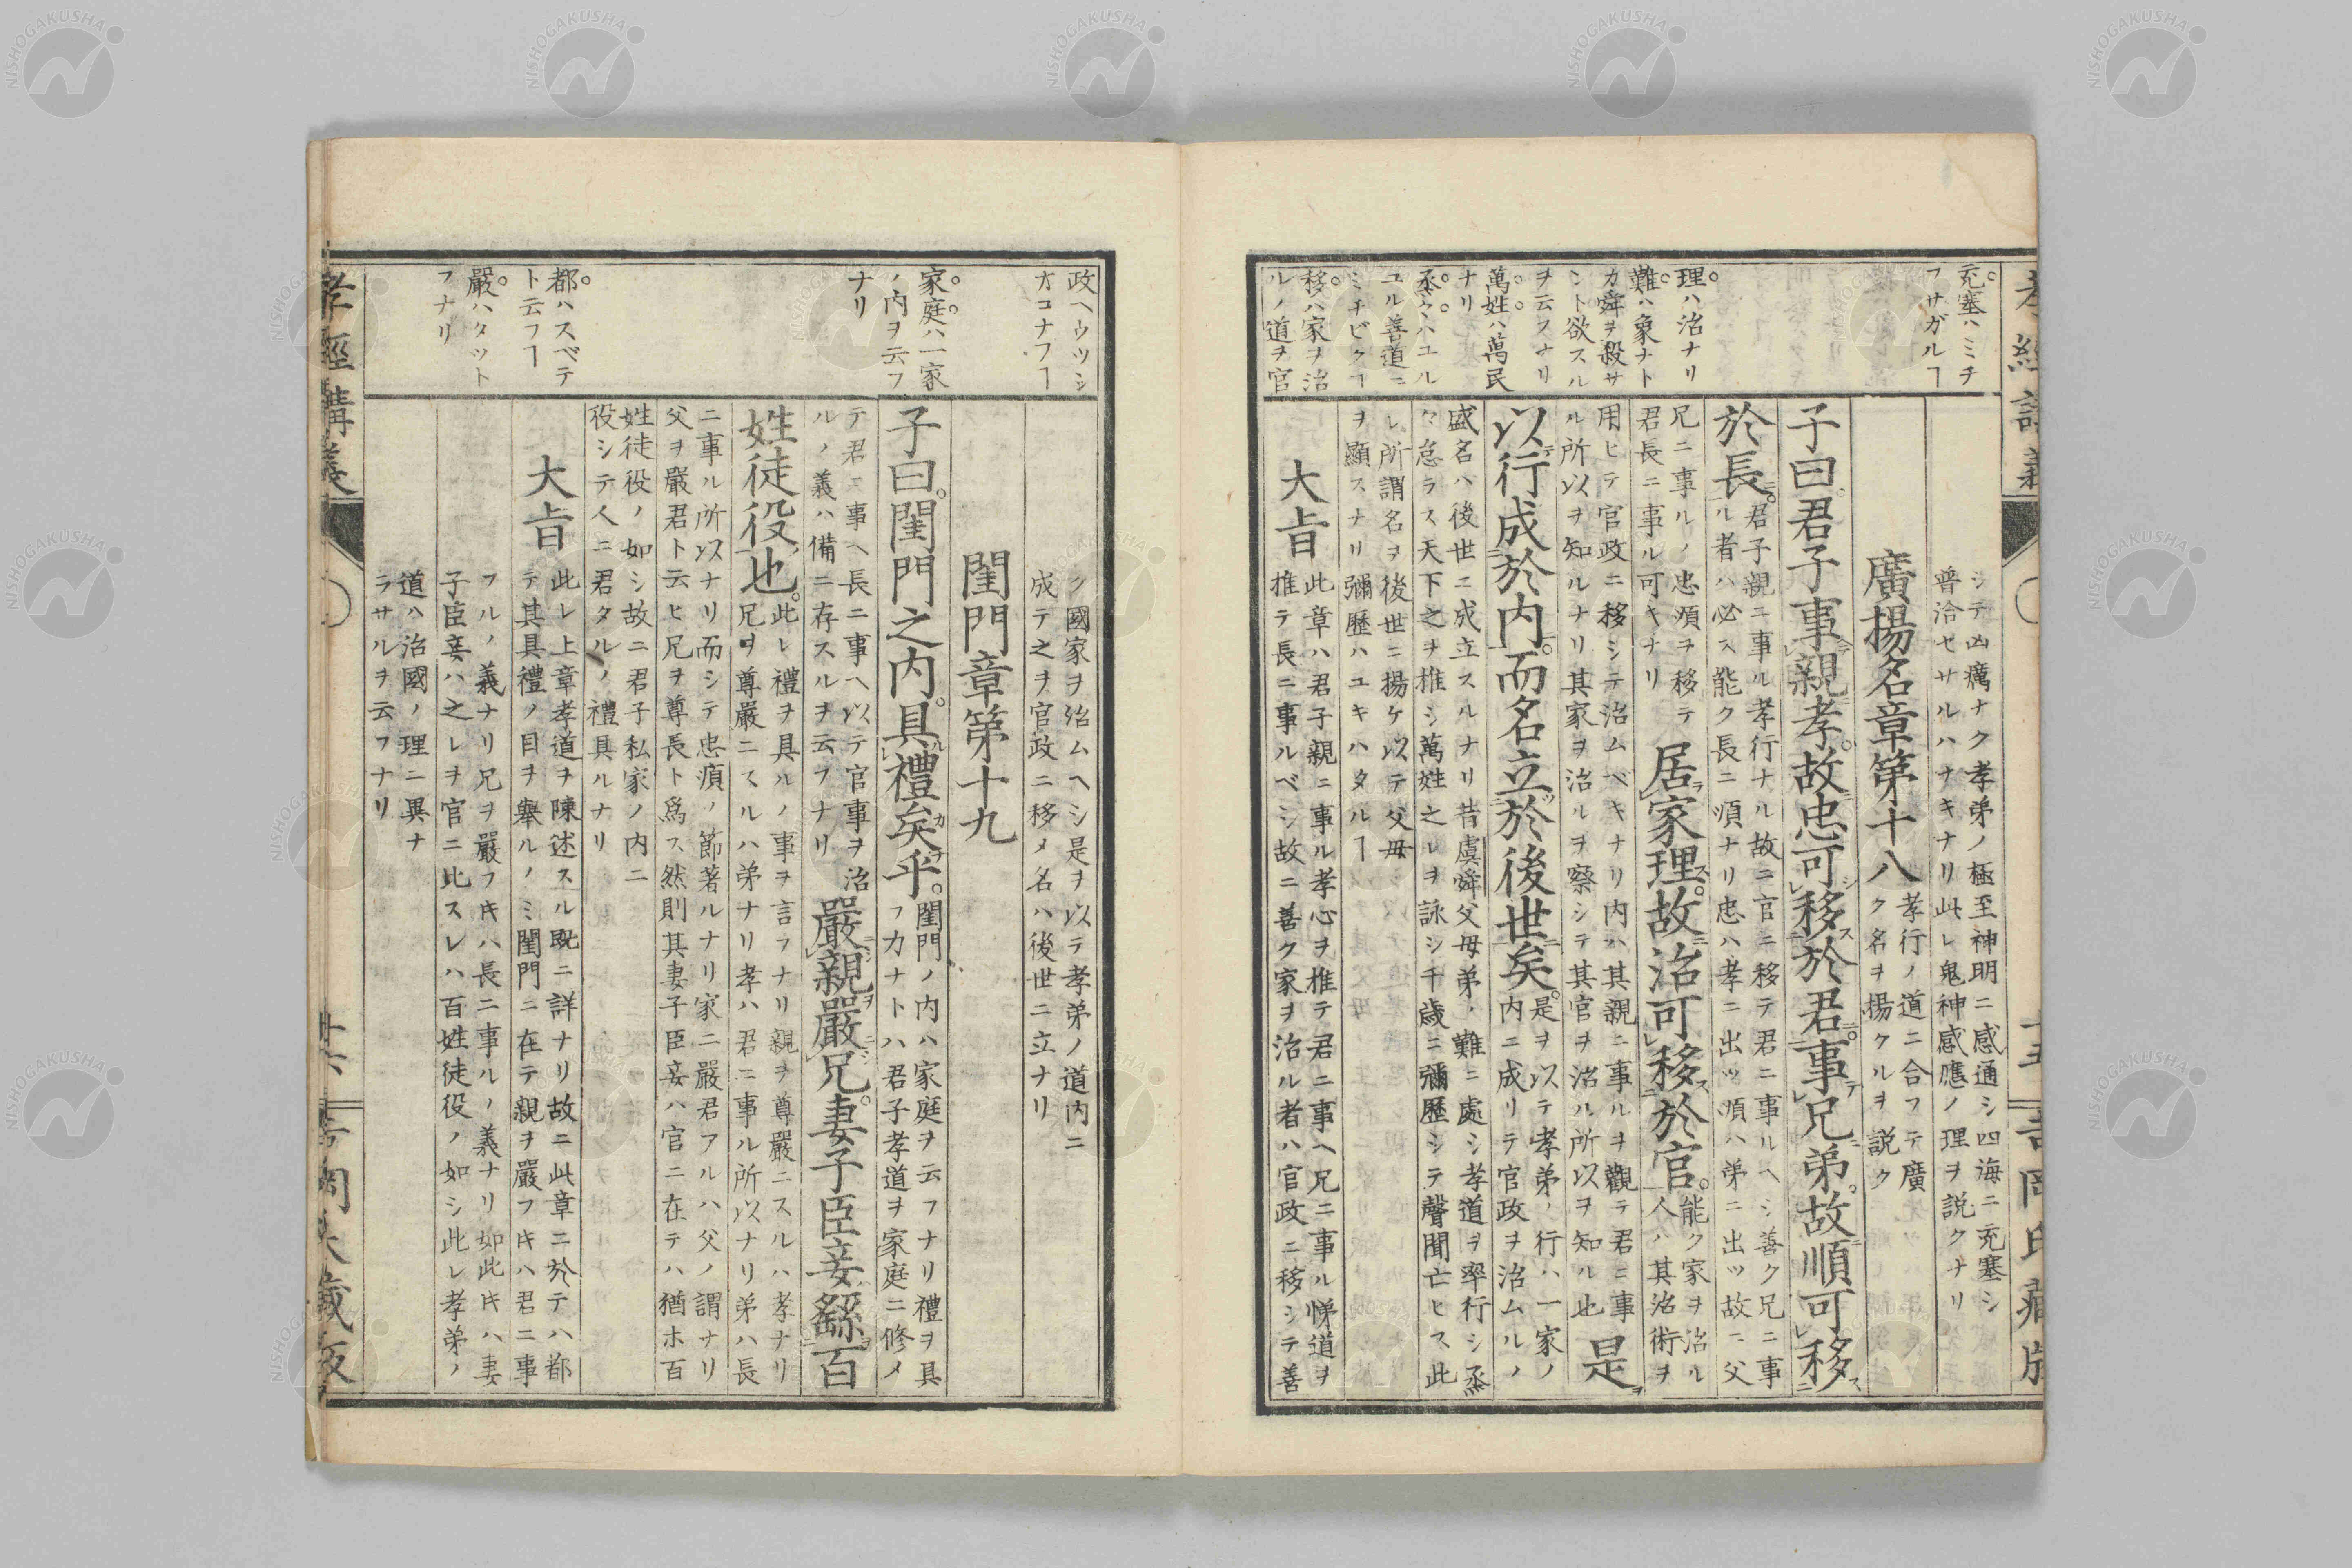 充塞ハミチ
フサガルヿ
理ハ治ナリ
難ハ象ナト
カ舜ヲ殺サ
ント欲スル
ヲ云フナリ
萬姓ハ萬民
ナリ
烝々ハユル
ユル善道ニ
ミチビクヿ
移ハ家ヲ治
ルノ道ヲ官
シテ凶癘ナク孝弟ノ極至神明ニ感通シ四海ニ充塞シ
普洽セサルハナキナリ此レ鬼神感應ノ理ヲ説クナリ
廣揚名章第十八
孝行ノ道ニ合フテ廣
ク名ヲ揚クルヲ説ク
子曰君子事親孝。故忠可移於君。事兄弟。故順可移
於長。
君子親ニ事ル孝行ナル故ニ官ニ移テ君ニ事ルヘシ善ク兄ニ事
ル者ハ必ス能ク長ニ順ナリ忠ハ孝ニ出ツ順ハ弟ニ出ツ故ニ父
兄ニ事ルノ忠順ヲ移テ
君長ニ事ル可キナリ
居家理。故治可移於官。
能ク家ヲ治ル
人ハ其治術ヲ
用ヒテ官政ニ移シテ治ムベキナリ内ハ其親ニ事ルヲ觀テ君ニ事
ル所以ヲ知ルナリ其家ヲ治ルヲ察シテ其官ヲ治ル所以ヲ知ル也
是
以行成於内。而名立於後世矣。
是ヲ以テ孝弟ノ行ハ一家ノ
内ニ成リテ官政ヲ治ムルノ
盛名ハ後世ニ成立スルナリ昔虞舜父母弟ノ難ニ處シ孝道ヲ率行シ烝
々怠ラス天下之ヲ推シ萬姓之レヲ詠シ千歳ニ彌歴シテ聲聞亡ヒス此
レ所謂名ヲ後世ニ揚ケ以テ父母
ヲ顯スナリ彌歴ハユキハタルヿ
大旨
此章ハ君子親ニ事ル孝心ヲ推テ君ニ事ヘ兄ニ事ル悌道ヲ
推テ長ニ事ルベシ故ニ善ク家ヲ治ル者ハ官政ニ移シテ善
政ヘウツシ
オコナフヿ
家庭ハ一家
ノ内ヲ云フ
ナリ
都ハスベテ
ト云フヿ
嚴ハタツト
フナリ
ク國家ヲ治ムヘシ是ヲ以テ孝弟ノ道内ニ
成テ之ヲ官政ニ移メ名ハ後世ニ立ナリ
閨門章第十九
子曰。閨門之内。具禮矣乎。
閨門ノ内ハ家庭ヲ云フナリ禮ヲ具
フカナトハ君子孝道ヲ家庭ニ修メ
テ君ニ事ヘ長ニ事ヘ以テ官事ヲ治
ルノ義ハ備ニ存スルヲ云フナリ
嚴親嚴兄。妻子臣妾繇百
姓徒役也。
此レ禮ヲ具ルノ事ヲ言フナリ親ヲ尊嚴ニスルハ孝ナリ
兄ヲ尊嚴ニスルハ弟ナリ孝ハ君ニ事ル所以ナリ弟ハ長
ニ事ル所以ナリ而シテ忠順ノ節著ルナリ家ニ嚴君アルハ父ノ謂ナリ
父ヲ嚴君ト云ヒ兄ヲ尊長ト爲ス然則其妻子臣妾ハ官ニ在テハ猶ホ百
姓徒役ノ如シ故ニ君子私家ノ内ニ
役シテ人ニ君タルノ禮具ルナリ
大旨
此レ上章孝道ヲ陳述スル既ニ詳ナリ故ニ此章ニ於テハ都
テ其具禮ノ目ヲ擧ルノミ閨門ニ在テ親ヲ嚴フキハ君ニ事
フルノ義ナリ兄ヲ嚴フキハ長ニ事ルノ義ナリ如此キハ妻
子臣妾ハ之レヲ官ニ比スレハ百姓徒役ノ如シ此レ孝弟ノ
道ハ治國ノ理ニ異ナ
ラサルヲ云フナリ
孝經講義